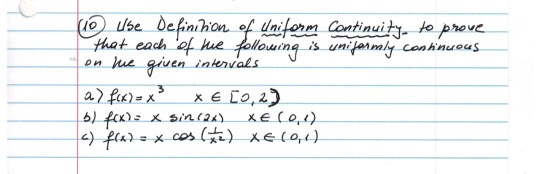 (10) Use Definition of Uniform Continuity to prove
that each of the following is uniformly continuous
on the given intervals
a) f(x) = x³ x ∈ [0, 2]
b) f(x) = x sin(2x) x ∈ (0, 1)
c) f(x) = x cos(1/x²) x ∈ (0, 1)